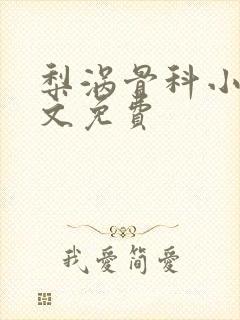 梨涡骨科小
文免費
我愛簡愛